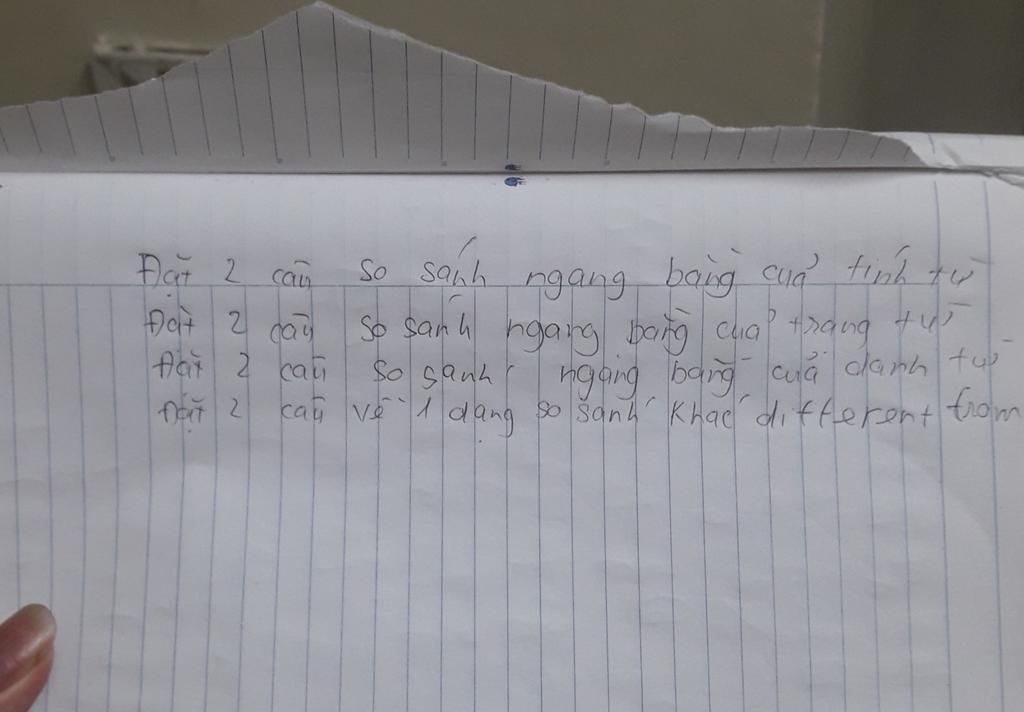 Đặt 2 câu so sánh ngang bằng của tính từ
Đặt 2 câu so sánh ngang bằng của trạng từ
Đặt 2 câu so sánh ngang bằng của danh từ
Đặt 2 câu về 1 dạng so sánh khác different from